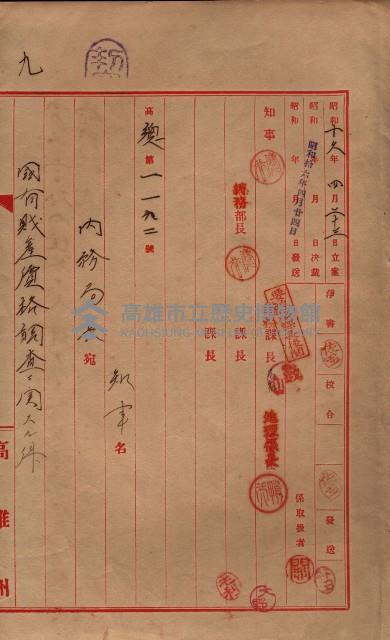 昭和十六年四月二十三日立案
昭和 年 月 日決裁
昭和 年 月 日發送
昭和拾六年四月廿四日
淨書
校合
發送
係取扱者
知事
總務部長
課長
課長
課長
地理係長
高總第一一九二號
內務局長宛
知事名
國有財產價格調查ニ關スル件
高雄州
九
高雄市立歷史博物館
KAOHSIUNG MUSEUM OF HISTORY